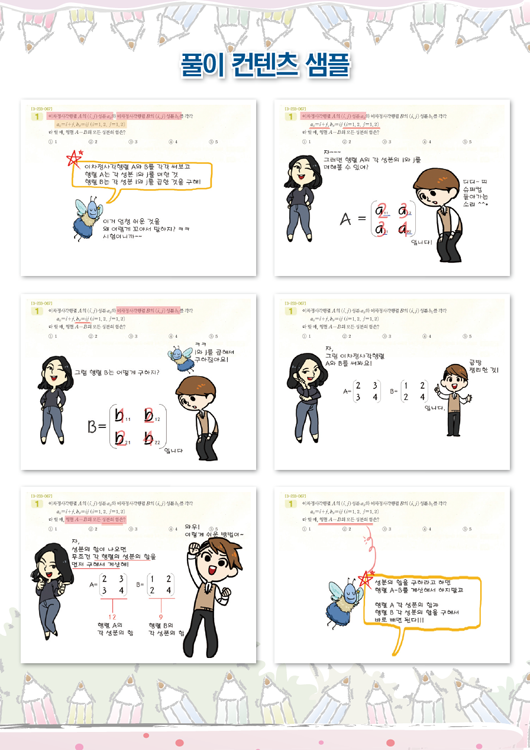 풀이 컨텐츠 샘플
1 이차정사각행렬 A의 (i, j) 성분 aij와 이차정사각행렬 B의 (i, j) 성분 bij를 각각
aij=i+j, bij=ij (i=1, 2, j=1, 2)
라 할 때, 행렬 A-B의 모든 성분의 합은?
① 1 ② 2 ③ 3 ④ 4 ⑤ 5
이차정사각행렬 A와 B를 각각 써보고
행렬 A는 각 성분 i와 j를 더한 것
행렬 B는 각 성분 i와 j를 곱한 것을 구해!
이거 엄청 쉬운 것을
왜 이렇게 꼬아서 말하지? ㅋㅋ
시험이니까~~
1 이차정사각행렬 A의 (i, j) 성분 aij와 이차정사각행렬 B의 (i, j) 성분 bij를 각각
aij=i+j, bij=ij (i=1, 2, j=1, 2)
라 할 때, 행렬 A-B의 모든 성분의 합은?
① 1 ② 2 ③ 3 ④ 4 ⑤ 5
자~~~
그러면 행렬 A의 각 성분의 i와 j를
더해볼 수 있어!
A =
a11 a12
a21 a22
입니다!
1 이차정사각행렬 A의 (i, j) 성분 aij와 이차정사각행렬 B의 (i, j) 성분 bij를 각각
aij=i+j, bij=ij (i=1, 2, j=1, 2)
라 할 때, 행렬 A-B의 모든 성분의 합은?
① 1 ② 2 ③ 3 ④ 4 ⑤ 5
ㅋㅋ
i와 j를 곱해서
구하잖아요!
그럼 행렬 B는 어떻게 구하지?
B=
b11 b12
b21 b22
입니다
1 이차정사각행렬 A의 (i, j) 성분 aij와 이차정사각행렬 B의 (i, j) 성분 bij를 각각
aij=i+j, bij=ij (i=1, 2, j=1, 2)
라 할 때, 행렬 A-B의 모든 성분의 합은?
① 1 ② 2 ③ 3 ④ 4 ⑤ 5
자,
그럼 이차정사각행렬
A와 B를 써봐요!
A= 2 3 B= 1 2
3 4 2 4
입니다.
금방
정리한 것!
1 이차정사각행렬 A의 (i, j) 성분 aij와 이차정사각행렬 B의 (i, j) 성분 bij를 각각
aij=i+j, bij=ij (i=1, 2, j=1, 2)
라 할 때, 행렬 A-B의 모든 성분의 합은?
① 1 ② 2 ③ 3 ④ 4 ⑤ 5
와우!
이렇게 쉬운 방법이~
자,
성분의 합이 나오면
무조건 각 행렬의 성분의 합을
먼저 구해서 계산해!
A= 2 3 B= 1 2
3 4 2 4
12 9
행렬 A의 행렬 B의
각 성분의 합 각 성분의 합
1 이차정사각행렬 A의 (i, j) 성분 aij와 이차정사각행렬 B의 (i, j) 성분 bij를 각각
aij=i+j, bij=ij (i=1, 2, j=1, 2)
라 할 때, 행렬 A-B의 모든 성분의 합은?
① 1 ② 2 ③ 3 ④ 4 ⑤ 5
성분의 합을 구하라고 하면
행렬 A-B를 계산해서 하지말고
행렬 A 각 성분의 합과
행렬 B 각 성분의 합을 구해서
바로 빼면 된다!!!